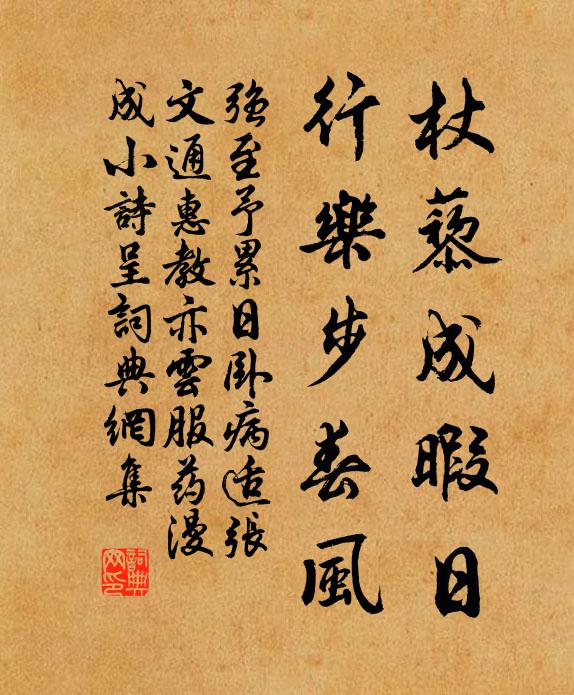 杖藜成暇日
行樂步春風
強至予累日卧病适張
文通惠教亦雲服药漫
成小詩呈詞典網集
詞典网印